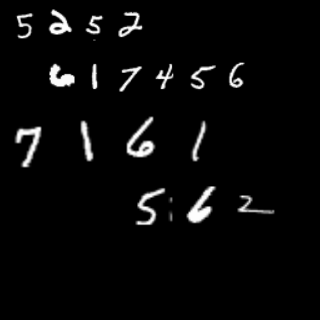 5 2 5 2
6 1 7 4 5 6
7 1 6 1
5 1 6 2